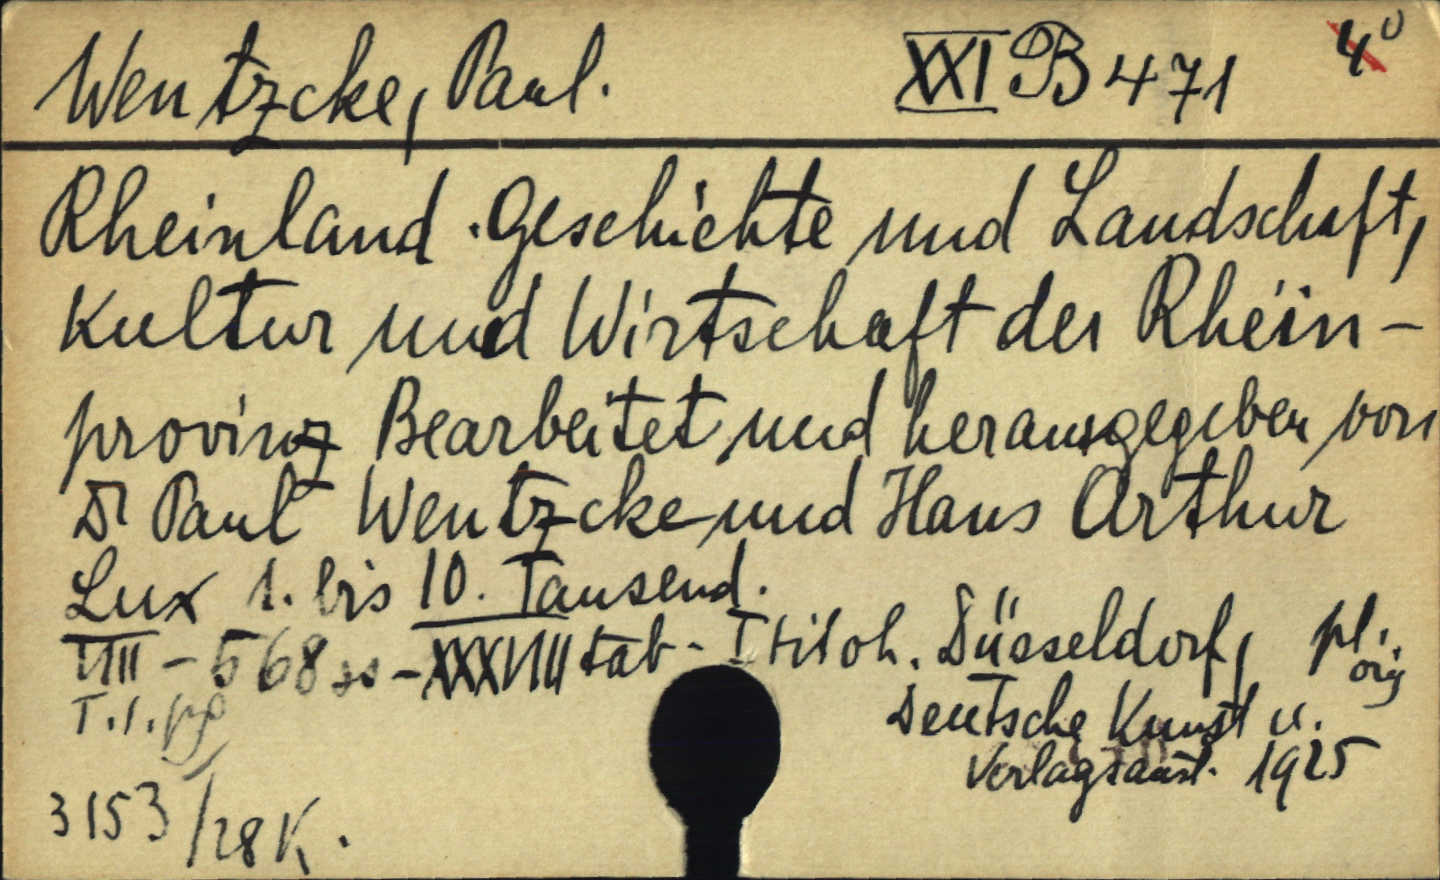 Wentzcke, Paul. XXI B 471 4°
Rheinland. Geschichte und Landschaft,
Kultur und Wirtschaft der Rhein-
provinz Bearbeitet und herausgegeben von
Dr Paul Wentzcke und Hans Arthur
Lux 1. bis 10. Tausend.
VIII - 568 ss - XXXVIII tab - I titoh. Düsseldorf, pl. orig
T. 1.
Deutsche Kunst u.
Verlagsanst. 1925
3153/28 K.